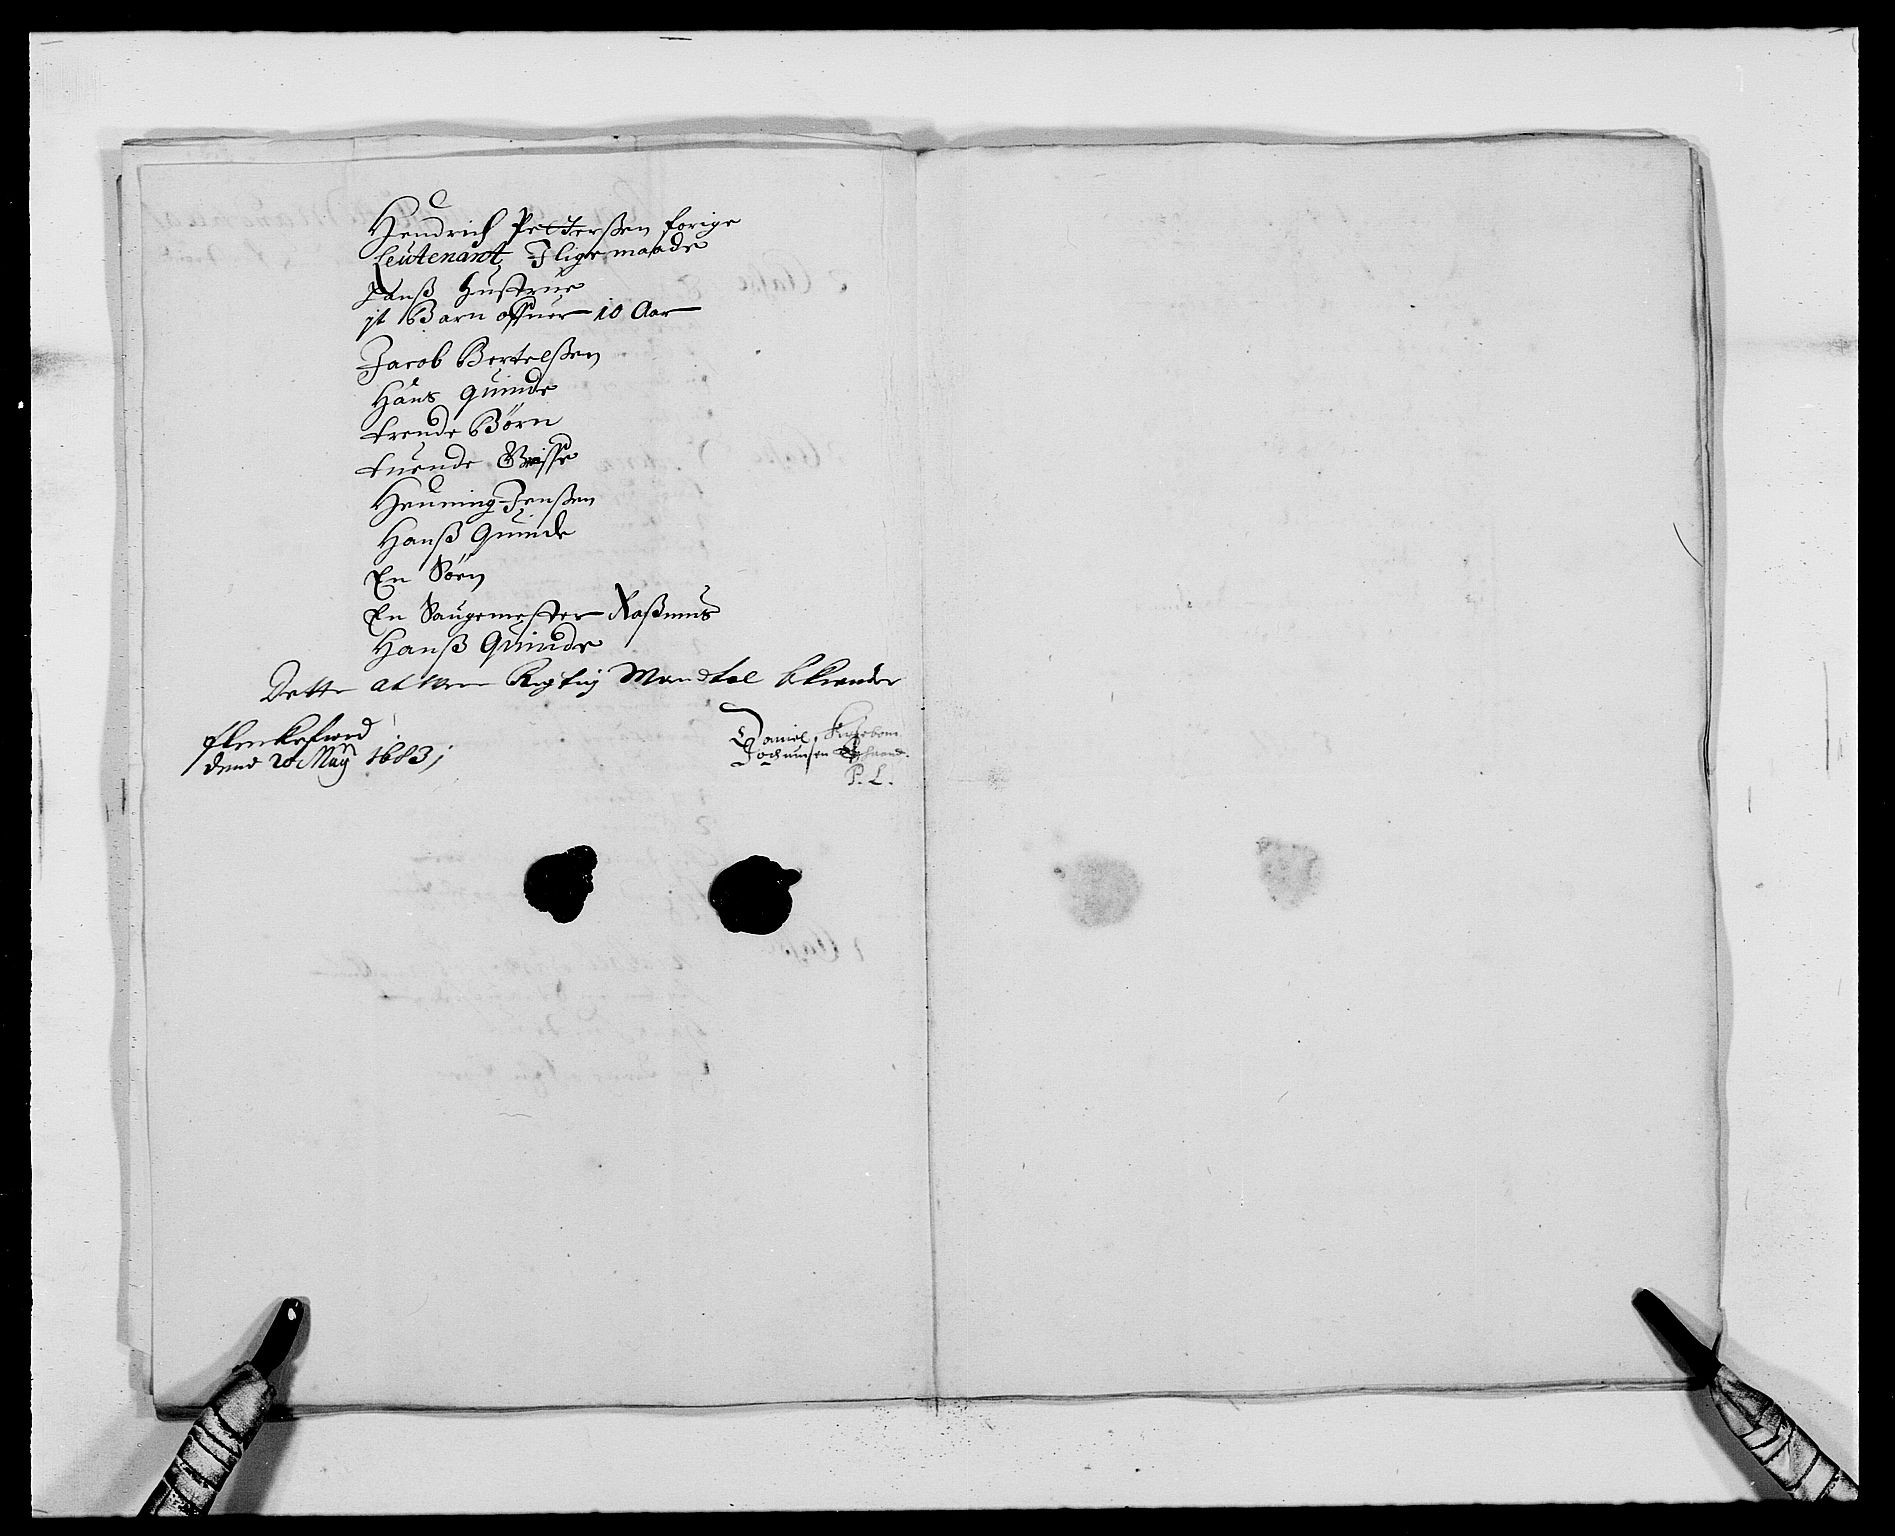 Hendrich Pettersßen forige
Leutenant, Iligemaade
Hanß Hustrue
jt Barn offuer 10 Aar
Jacob Bertelßen
Hans Quinde
trende Børn
tuende
Henning Jenßen
Hanß Quinde
En Søen
En Saugemester Raßmus
Hanß Quinde
Dette at were Rigtig Mandtal bekiender
flechefiord
dend 20 May 1683;
Daniel
Jochumsen
P. L.